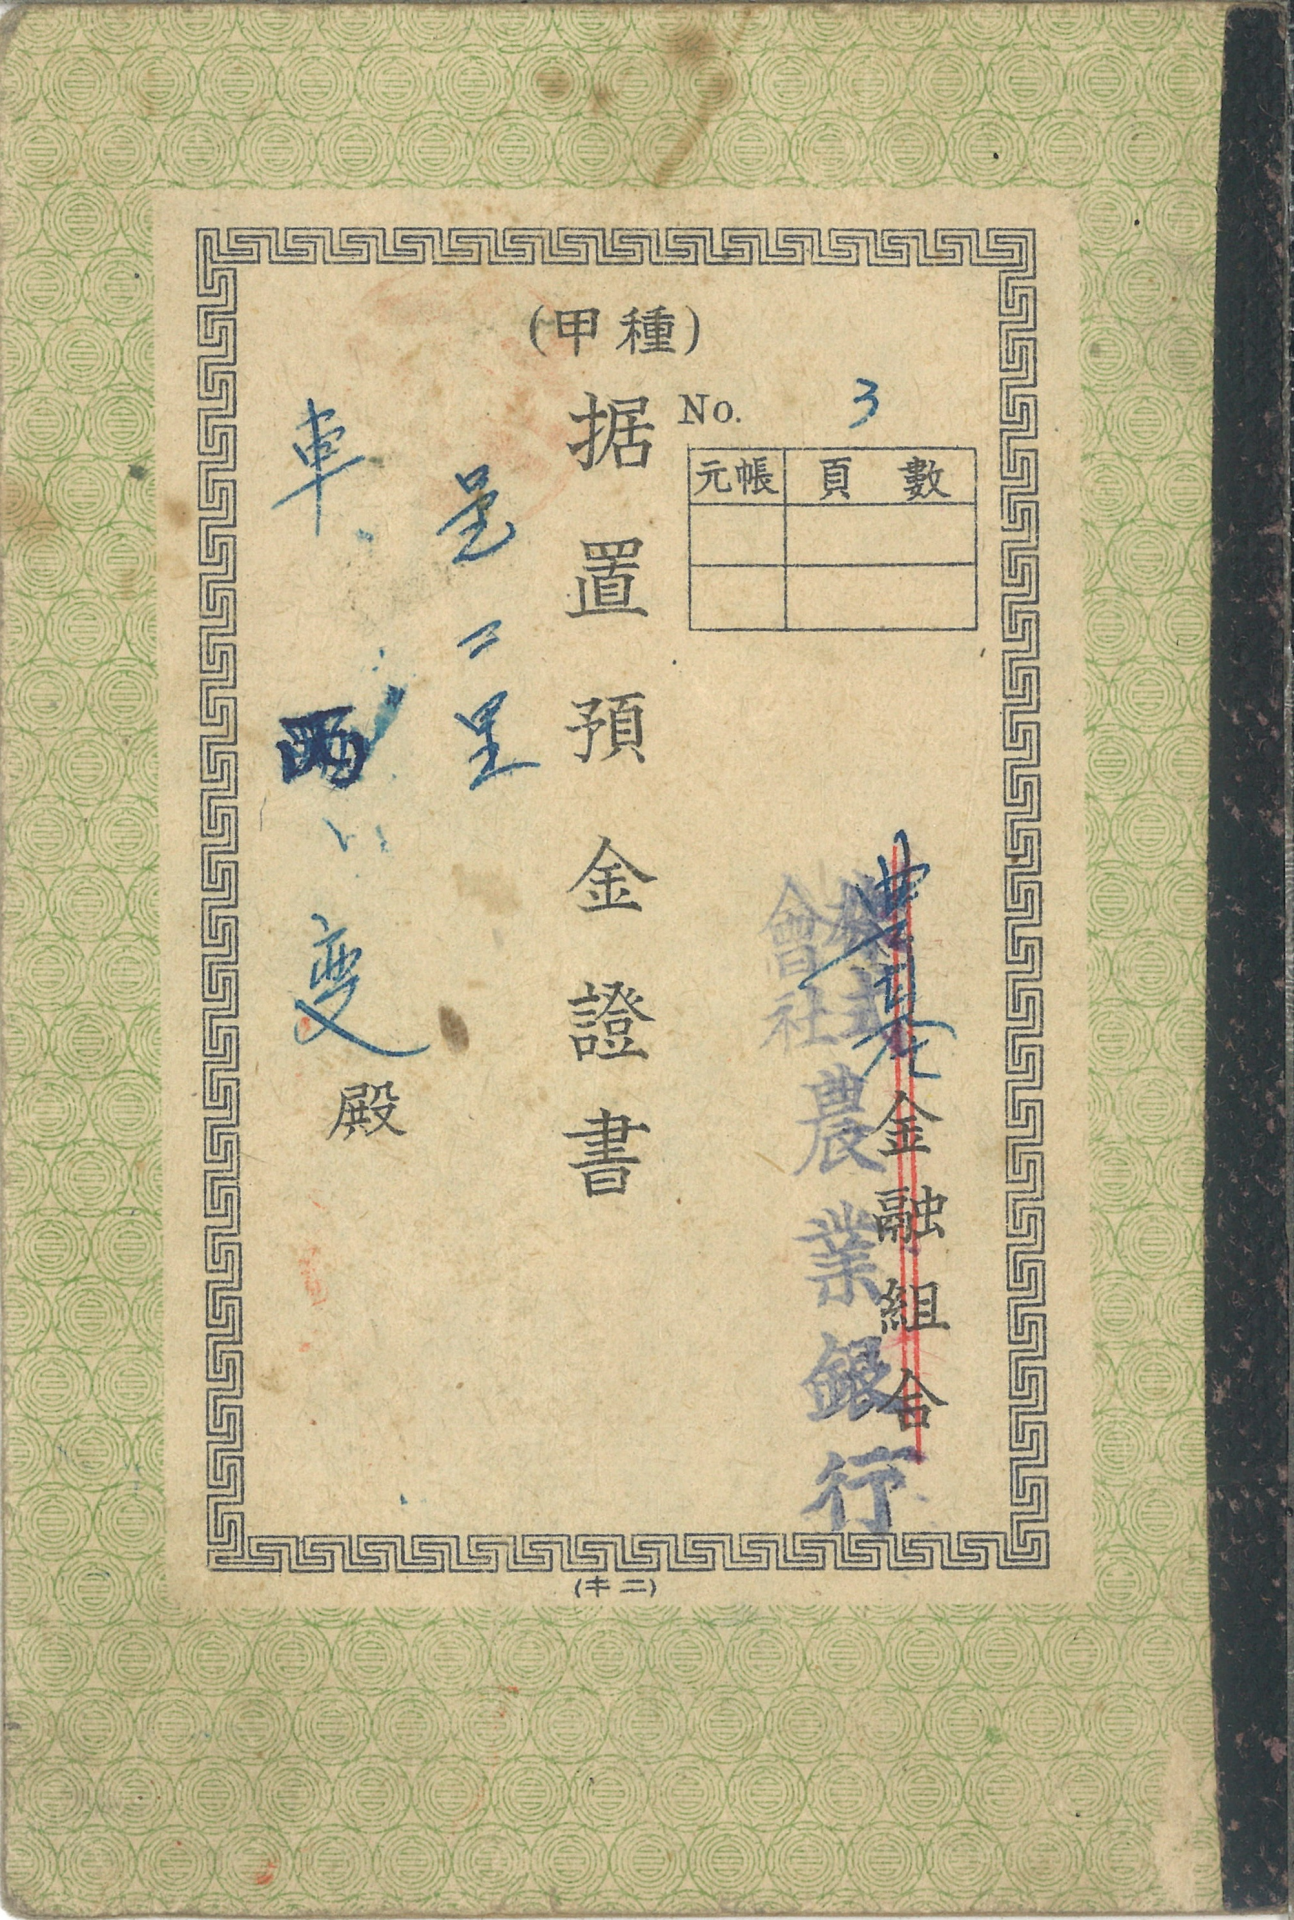 (甲種)
No. 3
元帳 頁數
金融組合
株式
會社
農業銀行
据置預金證書
車
殿
(キ二)